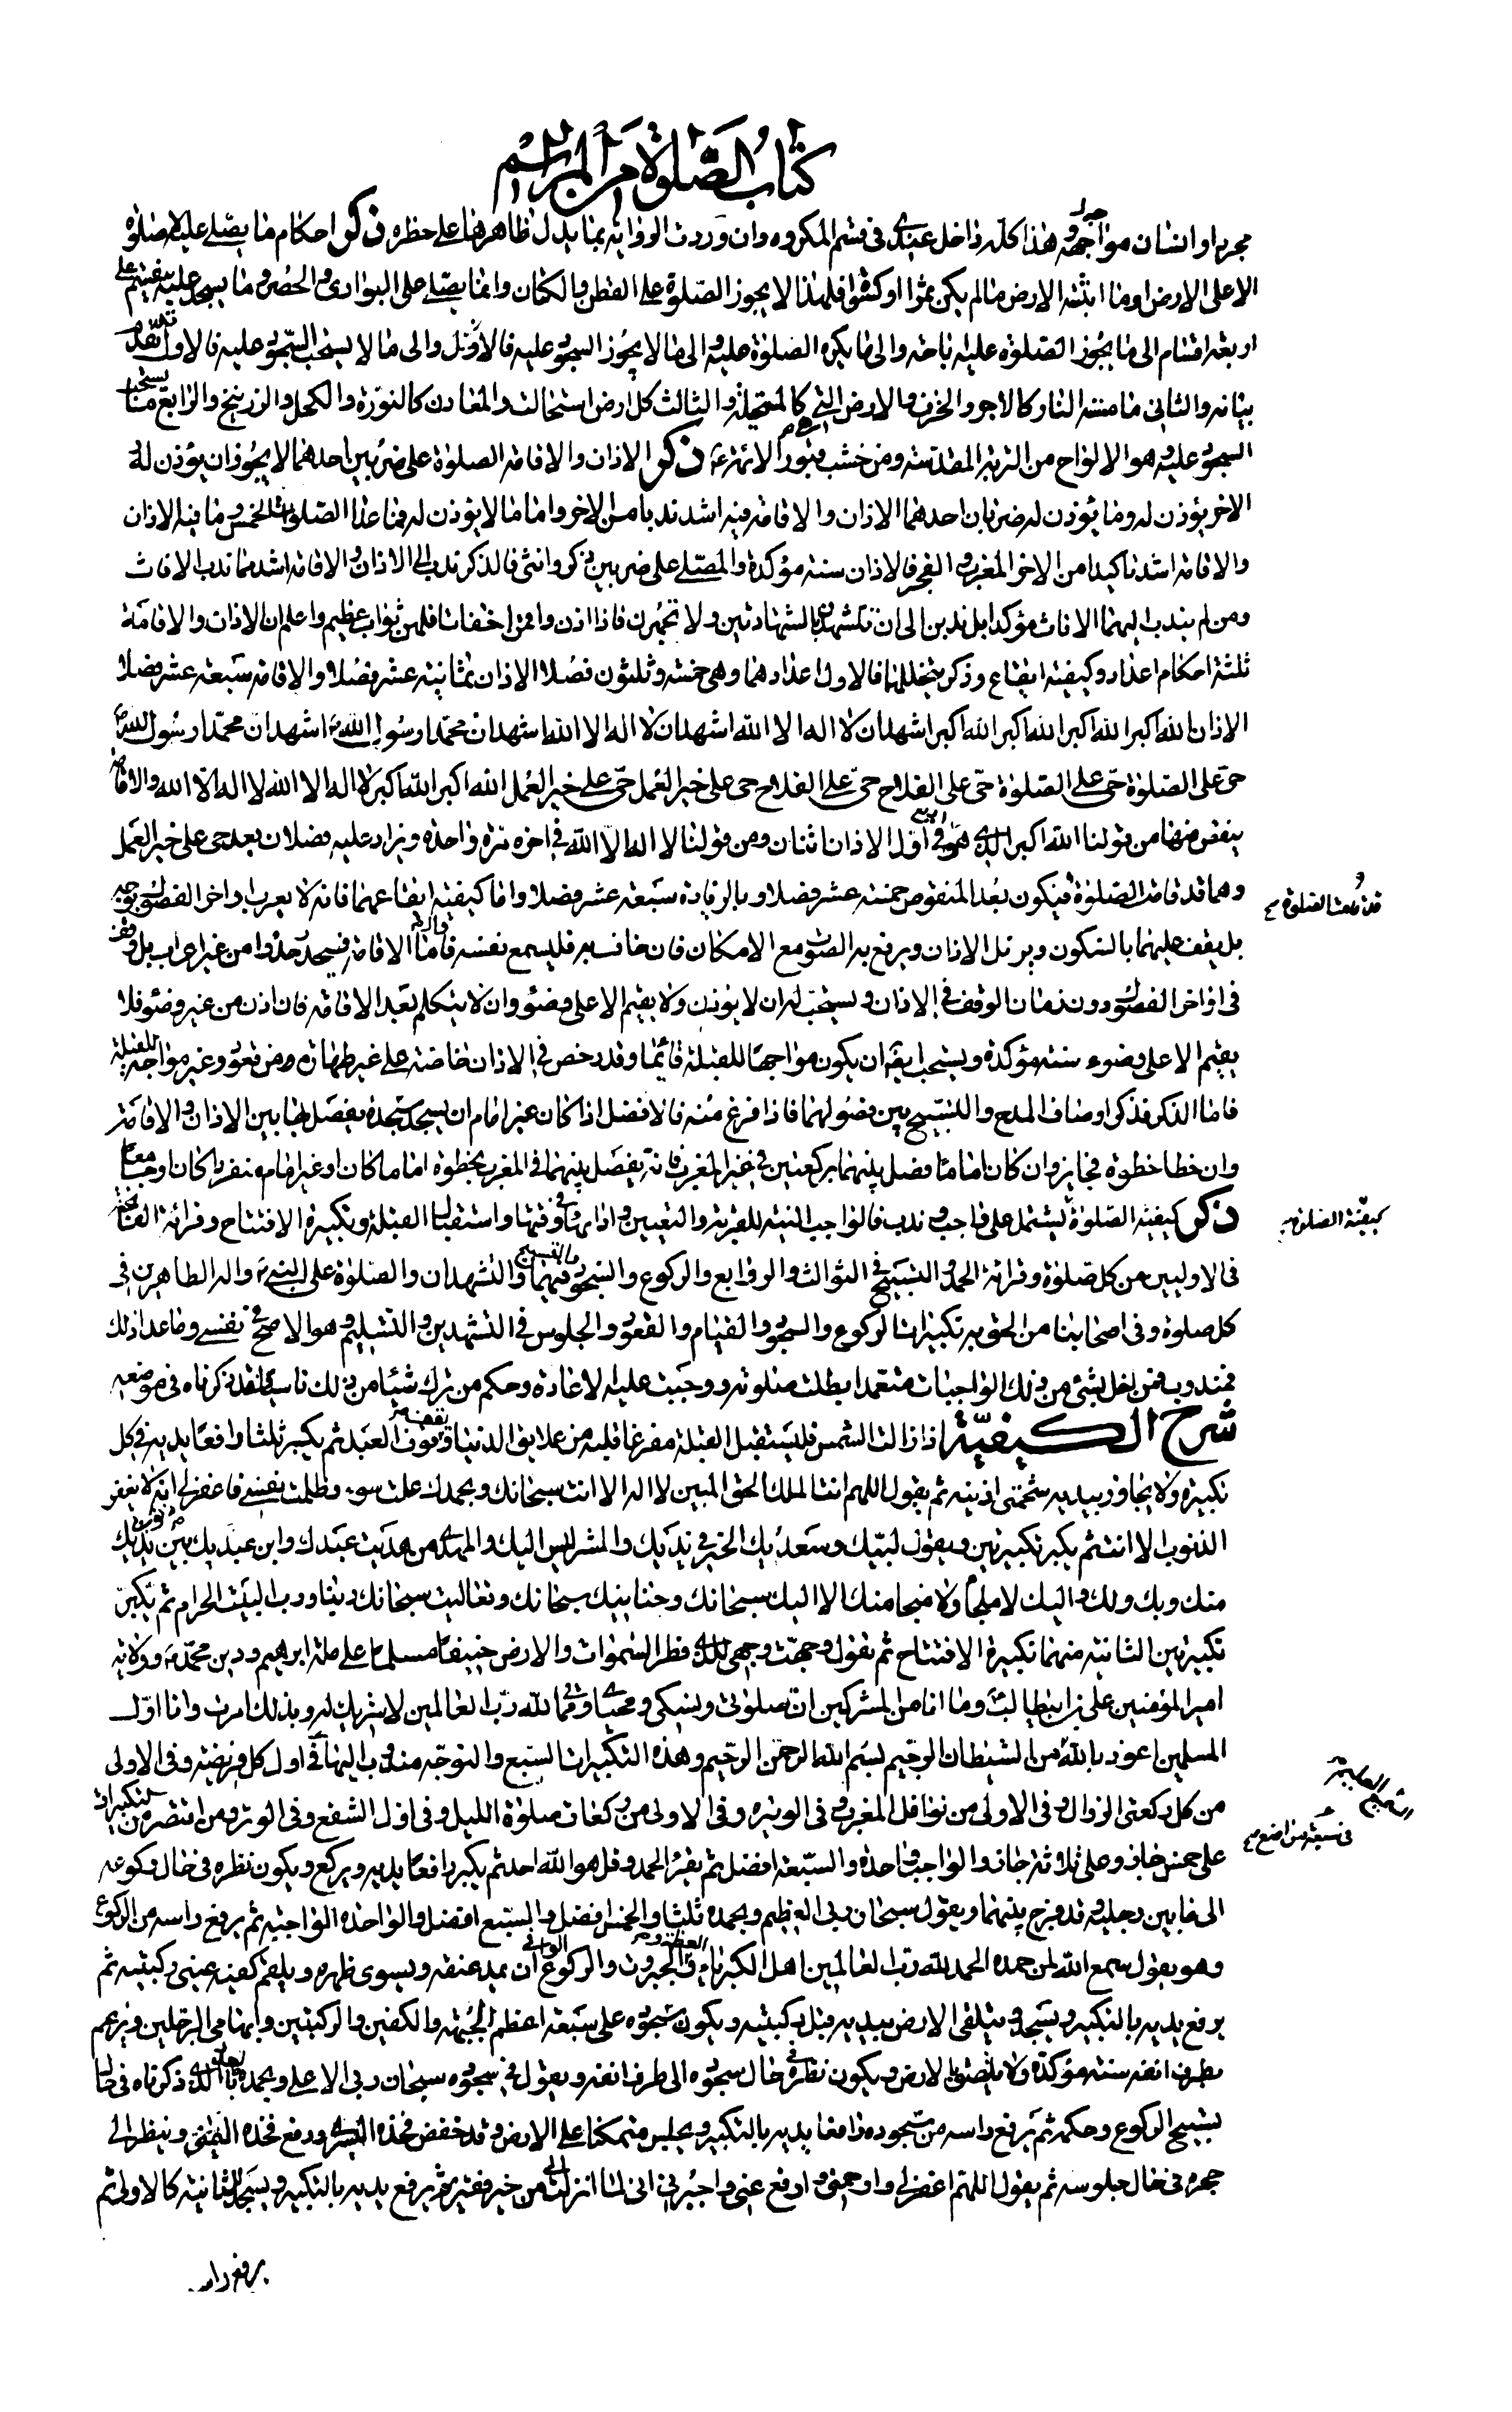 كتاب الصلوة من المراسم
مجرد او انسان مواجهه وهذا كله داخل عندى فى قسم المكروه وان وردت الرواية بما يدل ظاهرها على حظره ذكر احكام ما يصلى عليه لا صلوة
الا على الارض او ما انبتته الارض ما لم يكن ثمرا او كثرا فلهذا لا يجوز الصلوة على القطن والكتان وانما يصلى على البوارى والحصر وما يسجد عليه ينقسم على
اربعة اقسام الى ما يجوز الصلوة عليه باحة والى ما يكره الصلوة عليه والى ما لا يجوز السجود عليه فالاول والى ما لا يستحب السجود عليه فالاول تقدم
بيانه والثانى ما مسته النار كالاجر والخزف والارض السبخة والثالث كل ارض استحالت والمعادن كالنورة والكحل والزرنيخ والرابع ما يستحب
السجود عليه وهو الالواح من التربة المقدسة ومن خشب قبور الائمة ع ذكر الاذان والاقامة الصلوة على ضربين احدهما لا يجوز ان يؤذن له
الاخر يؤذن له وما يؤذن له ضربان احدهما الاذان والاقامة فيه اشد ندبا من الاخر واما ما لا يؤذن له فما عدا الصلوات الخمس وما فيه الاذان
والاقامة اشد تاكيدا من الاخر المغرب والفجر فالاذان سنة مؤكدة والمصلى على ضربين ذكر وانثى فالذكر ندب الى الاذان والاقامة اشد مما ندب الاناث
ومن لم يندب اليهما الاناث مؤكدا بل ندبن الى ان تتشهدن بالشهادتين ولا تجهرن فاذا اذن واقمن اخفاتا فلهن ثواب عظيم واعلم ان الاذان والاقامة
ثلثة احكام اعداد وكيفية ايقاع وذكر يتخللهما فالاول اعدادهما وهى خمسة وثلثون فصلا الاذان ثمانية عشر فصلا والاقامة سبعة عشر فصلا
الاذان الله اكبر الله اكبر الله اكبر الله اكبر اشهد ان لا اله الا الله اشهد ان لا اله الا الله اشهد ان محمدا رسول الله اشهد ان محمدا رسول الله
حى على الصلوة حى على الصلوة حى على الفلاح حى على الفلاح حى على خير العمل حى على خير العمل الله اكبر الله اكبر لا اله الا الله لا اله الا الله والاقامة
ينقص منها من قولنا الله اكبر الذى هو فى اول الاذان اثنان ومن قولنا لا اله الا الله فى اخره مرة واحدة ويزاد عليه فصلان بعد حى على خير العمل
وهما قد قامت الصلوة فيكون بعد المنقوص خمسة عشر فصلا وبالزيادة سبعة عشر فصلا واما كيفية ايقاعهما فانه لا يعرب اواخر الفصول بوجه
قد قامت الصلوة
بل يقف عليهما بالسكون ويرتل الاذان ويرفع به الصوت مع الامكان فان خافت به فليسمع نفسه فاما الاقامة فيحدر حدرا من غير اعراب بل وقف
فى اواخر الفصول دون زمان الوقف فى الاذان ويستحب له ان لا يؤذن ولا يقيم الا على وضوء وان لا يتكلم بعد الاقامة فان اذن من غير وضوء فلا
يقيم الا على وضوء سنة مؤكدة ويستحب ايضا ان يكون مواجها للقبلة قائما وقد رخص فى الاذان خاصة على غير طهارة ومن قعود وغير مواجه للقبلة
فاما الذكر فذكر اوصاف المدح والتسبيح بين فصولهما فاذا فرغ منه فالافضل اذا كان غير امام ان يسجد سجدة يفصل بها بين الاذان والاقامة
وان خطا خطوة فجايز وان كان اماما فصل بينهما بركعتين فى غير المغرب فانه يفصل بينهما فى المغرب بخطوة اماما كان او غير امام منفردا كان او جامعا
ذكر كيفية الصلوة يشتمل على واجب وندب فالواجب النية للقربة والتعيين واداءها فى وقتها واستقبال القبلة وتكبيرة الافتتاح وقرائة الفاتحة
كيفية الصلوة
فى الاوليين من كل صلوة وقرائة الحمد والتسبيح فى الثوالث والروابع والركوع والسجود والتسبيح فيهما والتشهدان والصلوة على النبى واله الطاهرين فى
كل صلوة وفى اصحابنا من الحق به تكبيرات الركوع والسجود والقيام والقعود والجلوس فى التشهدين والتسليم وهو الاصح فى نفسى وما عدا ذلك
فمندوب فمن اخل بشئ من ذلك الواجبات متعمدا بطلت صلوته ووجبت عليه الاعادة وحكم من ترك شيئا من ذلك ناسيا قد ذكرناه فى موضعه
شرح الكيفية اذا زالت الشمس فليستقبل القبلة مفرغا قلبه من علايق الدنيا وقوف العبد ثم يكبر ثلثا رافعا يديه فى كل
تكبيرة ولا يجاوز بيديه شحمتى اذنيه ثم يقول اللهم انت الملك الحق المبين لا اله الا انت سبحانك وبحمدك عملت سوء وظلمت نفسى فاغفر لى انه لا يغفر
الذنوب الا انت ثم يكبر تكبيرتين ويقول لبيك وسعديك الخير فى يديك والشر ليس اليك والمهدى من هديت عبدك وابن عبديك بين يديك
منك وبك ولك واليك لا ملجأ ولا منجا منك الا اليك سبحانك وحنانيك سبحانك وتعاليت سبحانك ربنا ورب البيت الحرام ثم يكبر
تكبيرتين الثانية منهما تكبيرة الافتتاح ثم تقول وجهت وجهى للذى فطر السموات والارض حنيفا مسلما على ملة ابرهيم ودين محمد وولاية
امير المؤمنين على بن ابيطالب وما انا من المشركين ان صلوتى ونسكى ومحياى ومماتى لله رب العالمين لا شريك له وبذلك امرت وانا اول
المسلمين اعوذ بالله من الشيطان الرجيم بسم الله الرحمن الرحيم وهذه التكبيرات السبع والتوجه مندوب اليها فى اول كل فريضة وفى الاولى
من كل ركعتى الزوال وفى الاولى من نوافل المغرب وفى الوتيرة وفى الاولى من ركعات صلوة الليل وفى اول الشفع وفى الوتر ومن اقتصر من التكبيرات
فى سبعة مواضع
على خمس جاز وعلى ثلاثة جاز والواجب واحدة والسبعة افضل ثم يقرأ الحمد وقل هو الله احد ثم يكبر رافعا يديه ويركع ويكون نظره فى حال ركوعه
الى ما بين رجليه وقد فرج بينهما ويقول سبحان ربى العظيم وبحمده ثلثا والخمس افضل والسبع افضل والواحدة الواجبة ثم يرفع راسه من الركوع
وهو يقول سمع الله لمن حمده الحمد لله رب العالمين اهل الكبرياء والعظمة والجبروت والركوع الوافى ان يمد عنقه ويسوى ظهره ويلقم كفيه عينى ركبتيه ثم
يرفع يديه بالتكبير ويسجد ويتلقى الارض بيديه قبل ركبتيه ويكون سجوده على سبعة اعظم الجبهة والكفين والركبتين وابهامى الرجلين ويرغم
بطرف انفه سنة مؤكدة ولا يلصق بالارض ويكون نظره فى حال سجوده الى طرف انفه ويقول فى سجوده سبحان ربى الاعلى وبحمده الذى ذكرناه فى
تسبيح الركوع وحكمه ثم يرفع راسه من سجوده رافعا يديه بالتكبير ويجلس متمكنا على الارض وقد خفض فخذه اليسرى ورفع فخذه اليمنى وينظر الى
حجره فى حال جلوسه ثم يقول اللهم اغفر لى وارحمنى وادفع عنى واجبرنى انى لما انزلت الى من خير فقير ثم يرفع يديه بالتكبير ويسجد الثانية كالاولى ثم
يرفع راسه